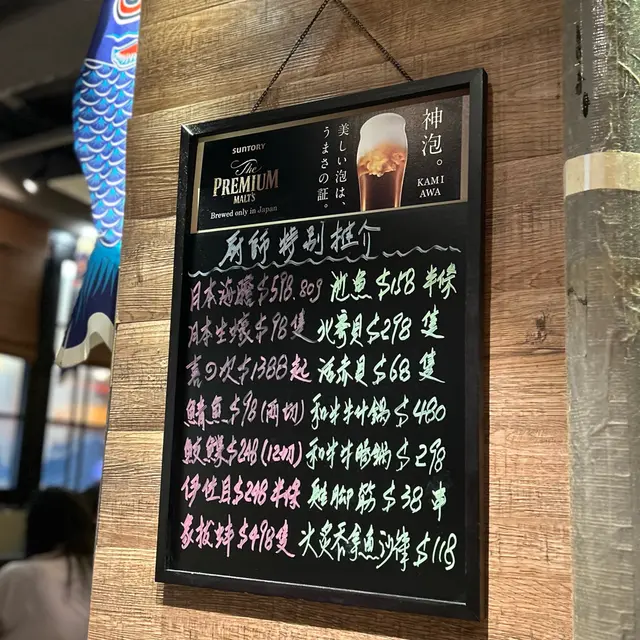 SUNTORY
The
PREMIUM
MALT'S
Brewed only in Japan
美しい泡は、
うまさの証。
神泡。
KAMI
AWA
廚師特別推介
日本海膽$598.80g 池魚$158半條
日本生蠔$98隻 北寄貝$298隻
喜の次$1388起 活赤貝$68隻
鯖魚$98(両切) 和牛牛什鍋$480
$248(12切) 和牛牛腸鍋$298
伊佐目$248半條 $38串
象拔蚌$498隻 火炙吞拿魚沙律$118